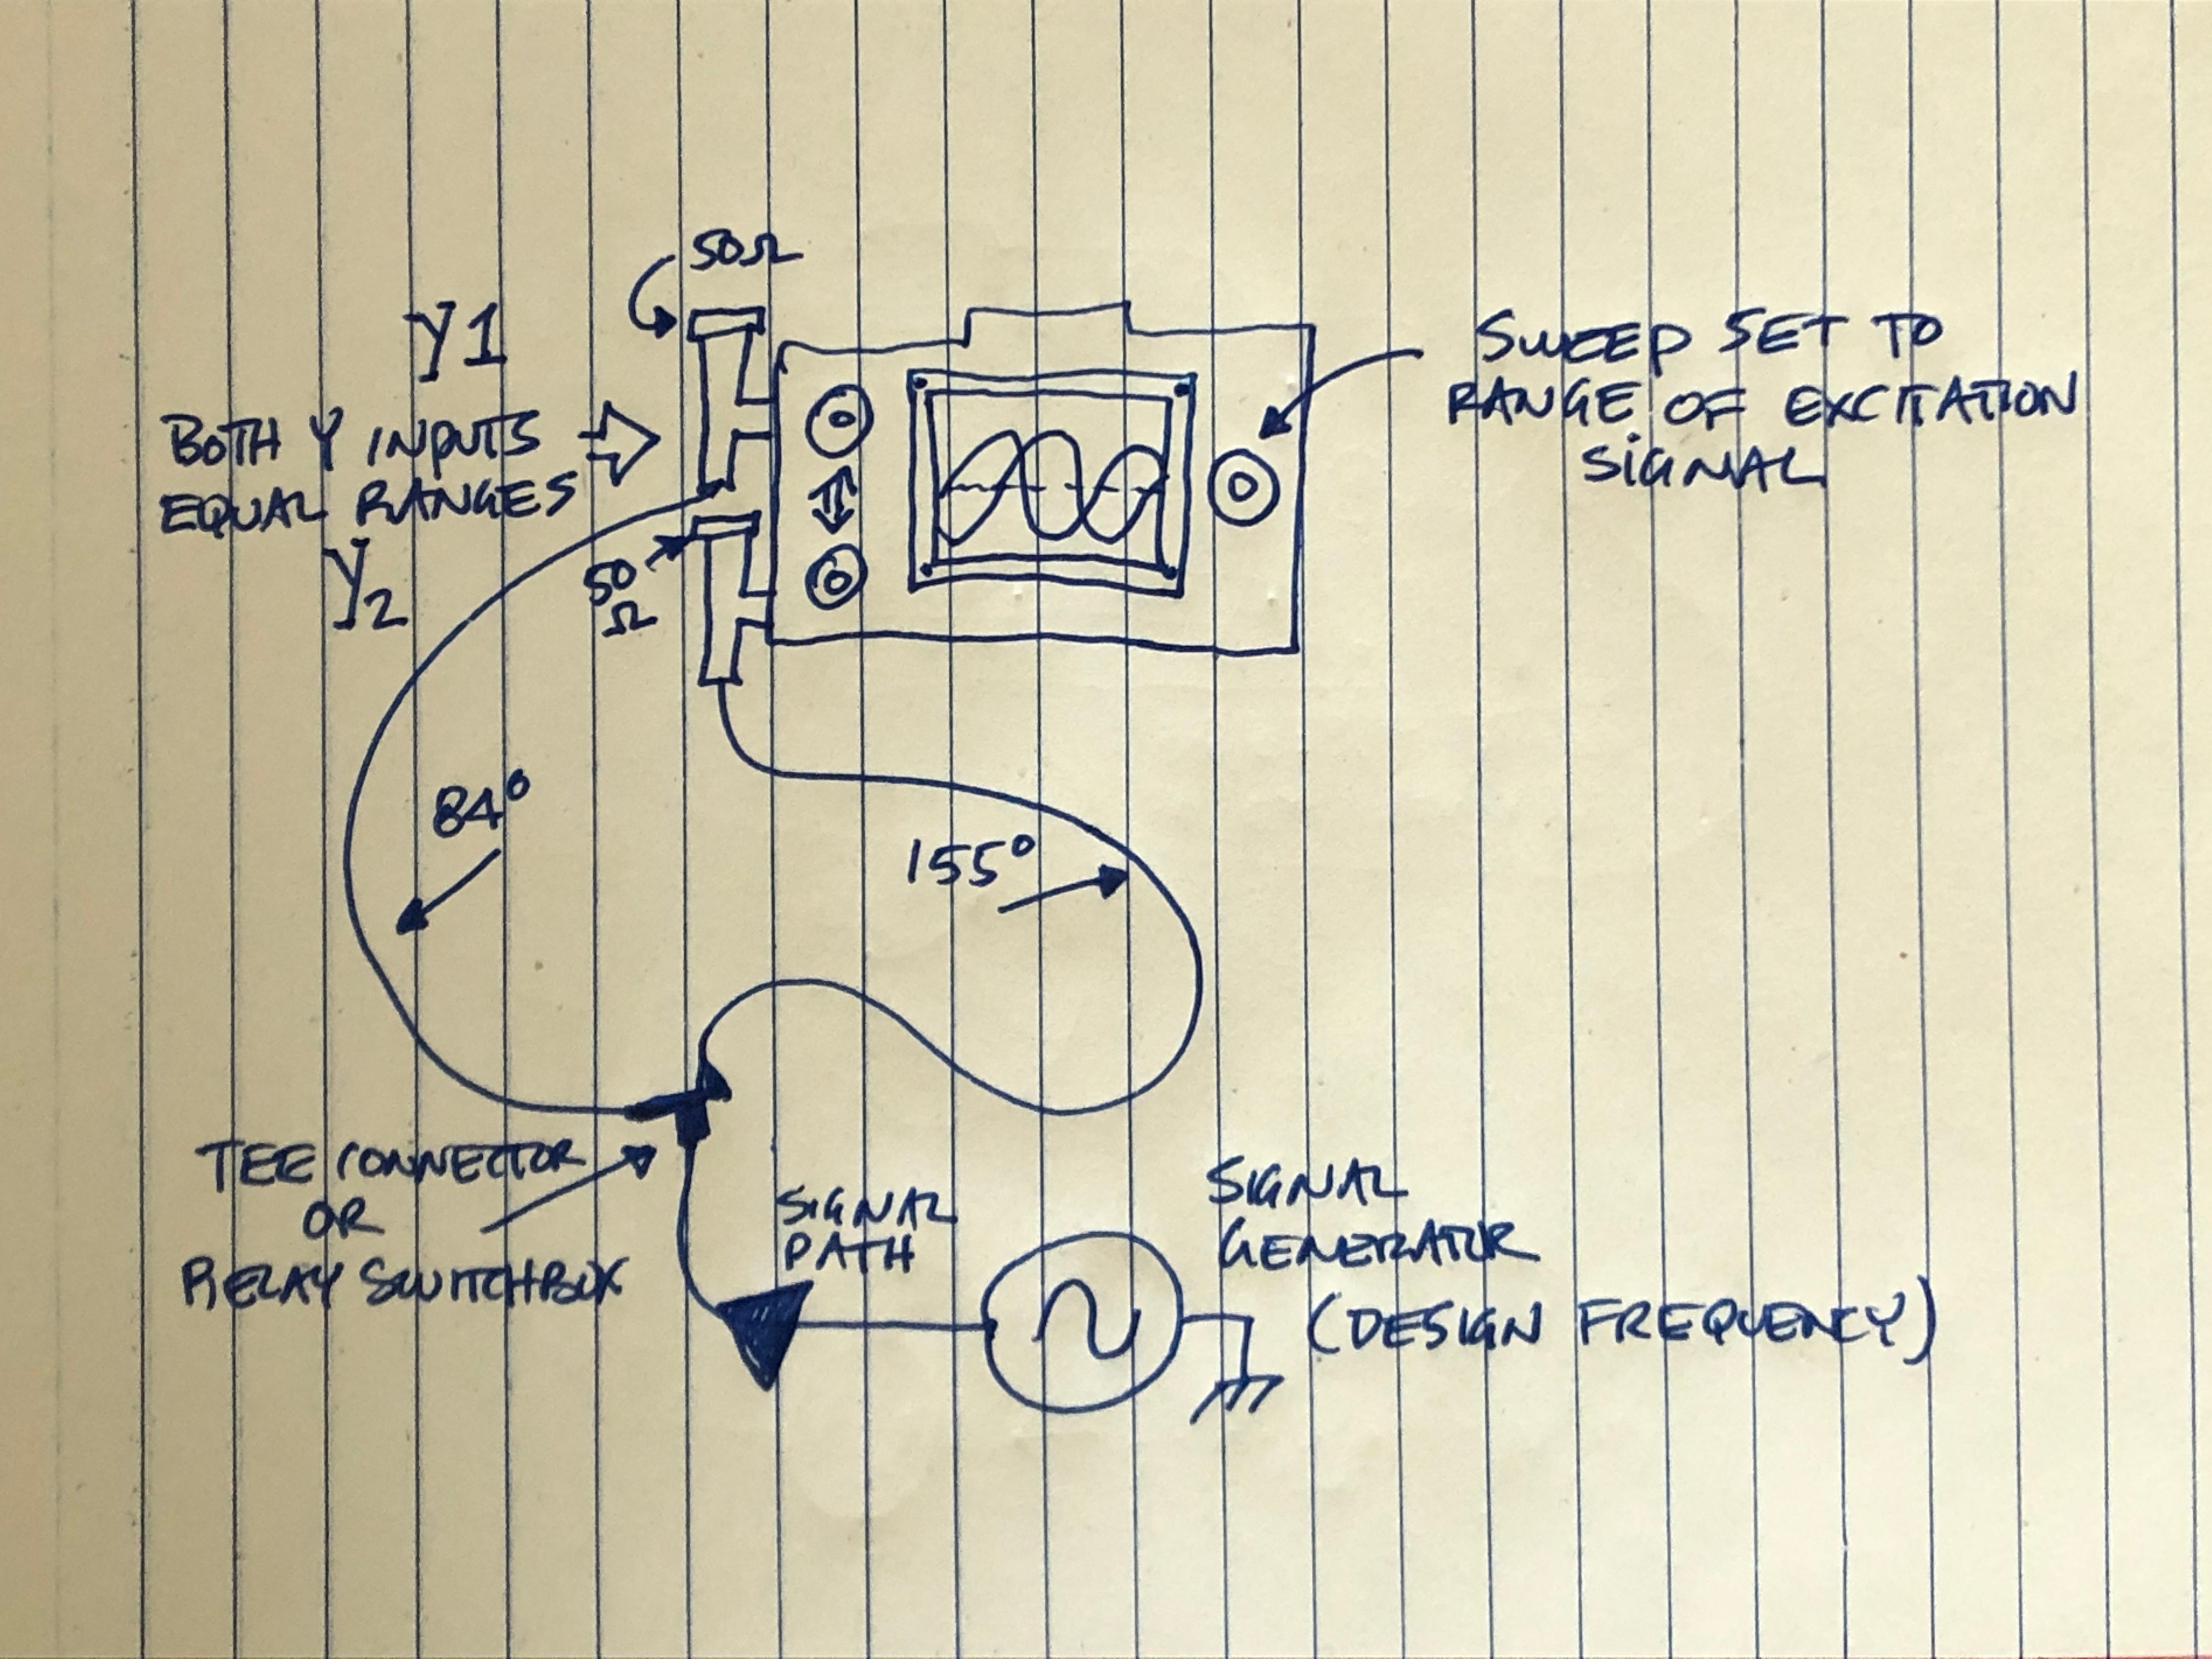 50Ω
Y1
BOTH Y INPUTS
EQUAL RANGES
Y2
50
Ω
SWEEP SET TO
RANGE OF EXCITATION
SIGNAL
84°
155°
TEE CONNECTOR
OR
RELAY SWITCHBOX
SIGNAL
PATH
SIGNAL
GENERATOR
(DESIGN FREQUENCY)